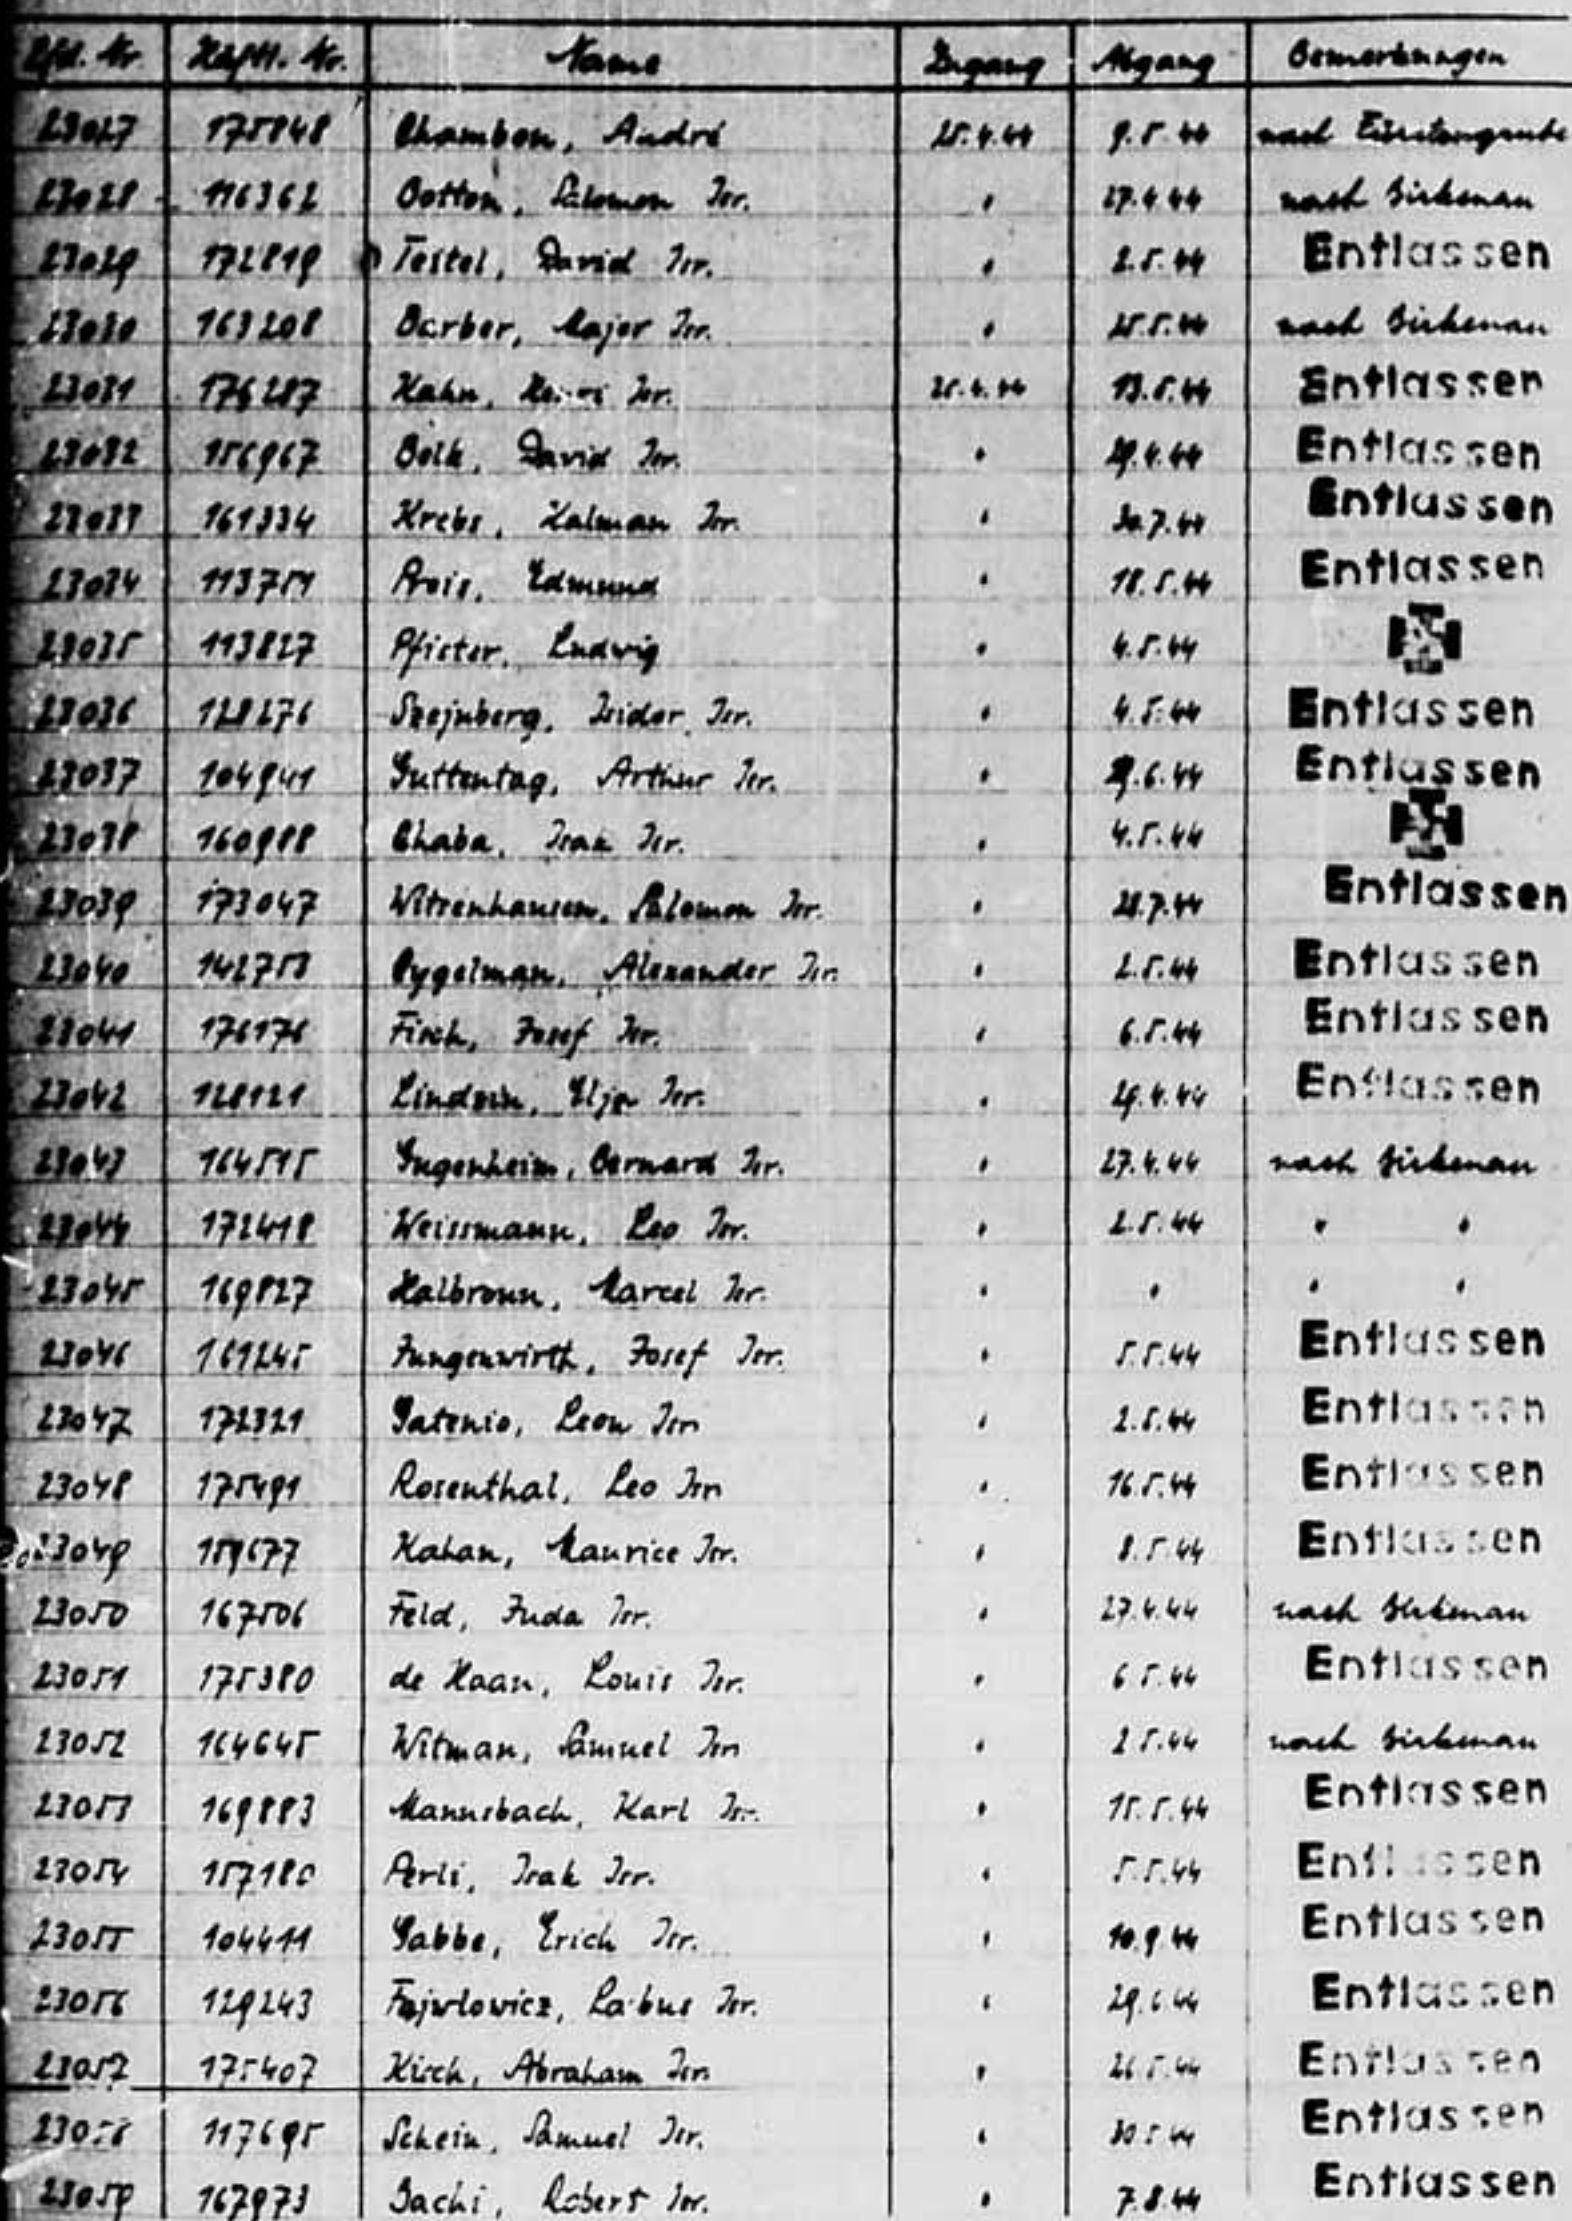 Lfd. Nr. Häftl. Nr. Name Zugang Abgang Bemerkungen
23027 175848 Chambon, André 25.4.44 9.5.44 nach Fürstengrube
23028 116362 Botton, Salomon Isr. " 27.4.44 nach Birkenau
23029 172819 Testel, David Isr. " 2.5.44 Entlassen
23030 163208 Barber, Major Isr. " 25.5.44 nach Birkenau
23031 176287 Kahn, Isr. 25.4.44 13.5.44 Entlassen
23032 156967 David Isr. " 29.4.44 Entlassen
23033 161334 Krebs, Kalman Isr. " 30.7.44 Entlassen
23034 113751 Edmund " 18.5.44 Entlassen
23035 113827 Pfister, Ludwig " 4.5.44
23036 128276 Szejnberg, Isidor Isr. " 4.5.44 Entlassen
23037 104941 Guttentag, Arthur Isr. " 29.6.44 Entlassen
23038 160988 Chaba, Isak Isr. " 4.5.44
23039 173047 Witzenhausen, Salomon Isr. " 28.7.44 Entlassen
23040 142753 Cygelman, Alexander Isr. " 2.5.44 Entlassen
23041 176176 Fisch, Josef Isr. " 6.5.44 Entlassen
23042 128121 Elja Isr. " 29.4.44 Entlassen
23043 164515 Gugenheim, Bernard Isr. " 27.4.44 nach Birkenau
23044 172418 Weissmann, Leo Isr. " 2.5.44 " "
23045 169827 Halbronn, Marcel Isr. " " " "
23046 161245 Jungenwirth, Josef Isr. " 5.5.44 Entlassen
23047 172321 Gatenio, Leon Isr. " 2.5.44 Entlassen
23048 175491 Rosenthal, Leo Isr. " 16.5.44 Entlassen
23049 159677 Kahan, Maurice Isr. " 8.5.44 Entlassen
23050 167506 Feld, Juda Isr. " 27.4.44 nach Birkenau
23051 175380 de Haan, Louis Isr. " 6.5.44 Entlassen
23052 164645 Witman, Samuel Isr. " 2.5.44 nach Birkenau
23053 169883 Mannsbach, Karl Isr. " 15.5.44 Entlassen
23054 157180 Perli, Isak Isr. " 5.5.44 Entlassen
23055 104411 Gabbe, Erich Isr. " 10.9.44 Entlassen
23056 129243 Fajwlowicz, Labus Isr. " 29.6.44 Entlassen
23057 175407 Kirch, Abraham Isr. " 26.5.44 Entlassen
23058 117695 Schein, Samuel Isr. " 30.5.44 Entlassen
23059 167973 Robert Isr. " 7.8.44 Entlassen